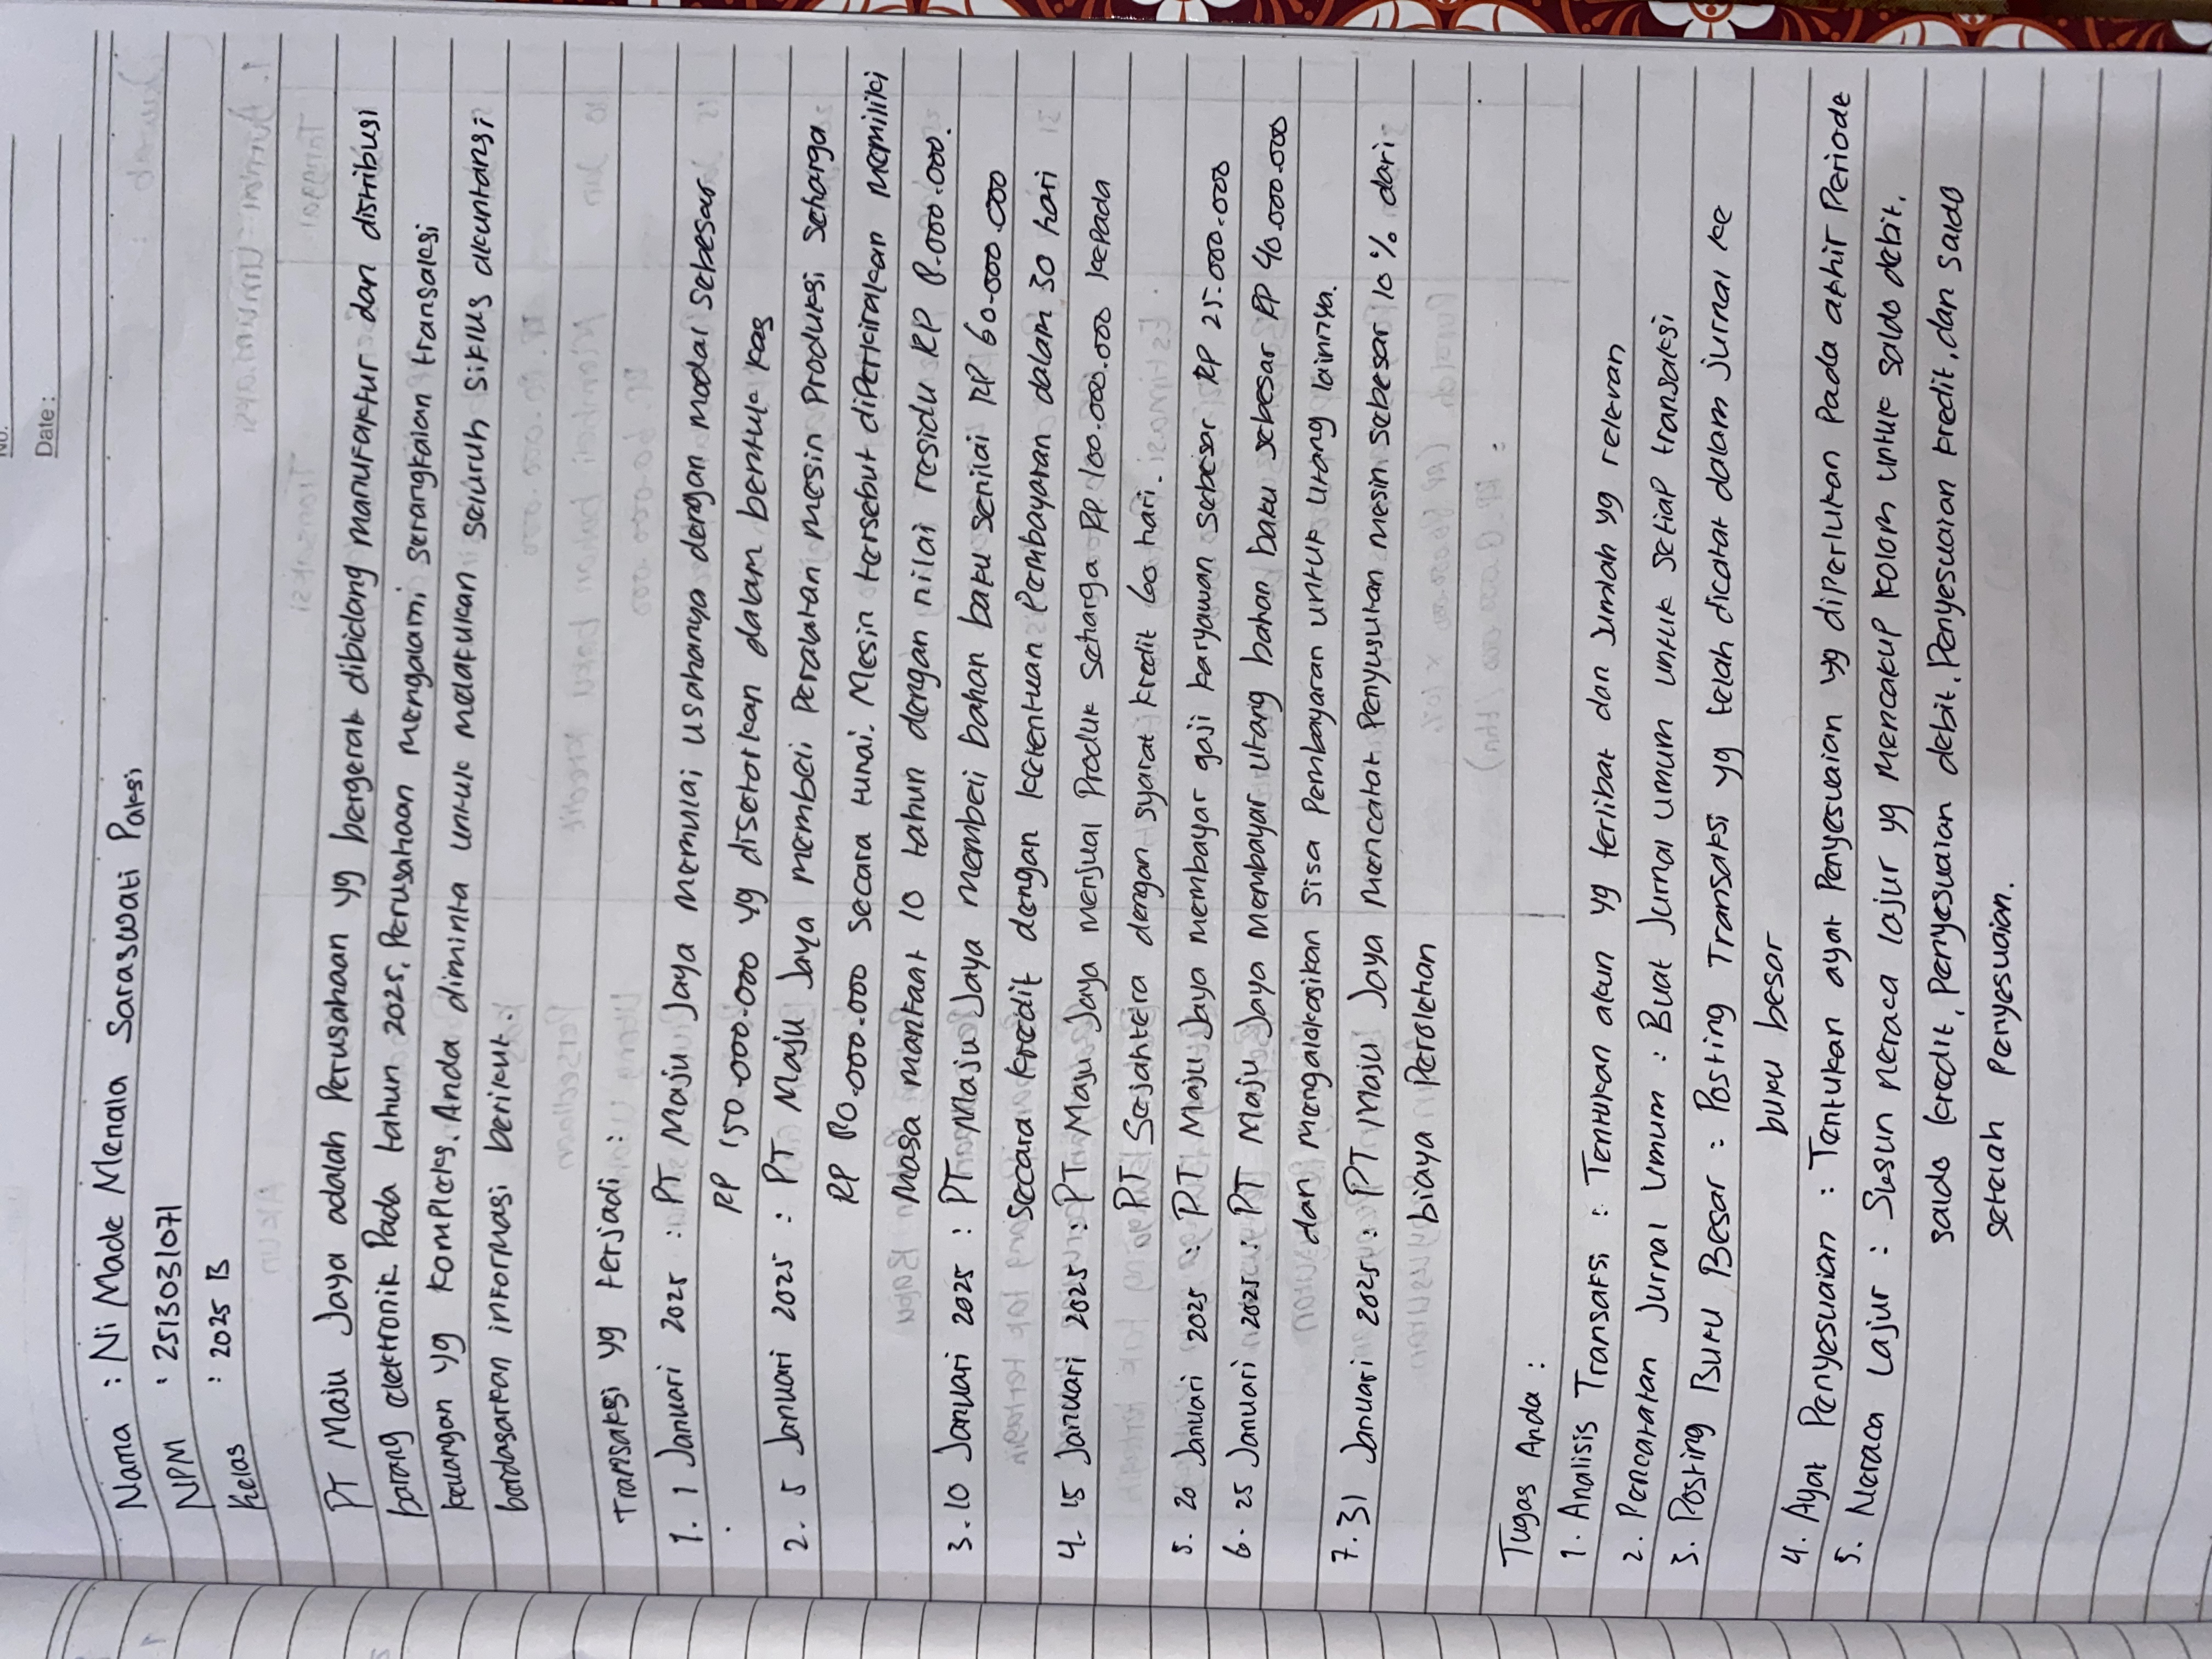 No.
Date :
Nama : Ni Made Menala Saraswati Paksi
NPM : 2513031071
Kelas : 2025 B
PT Maju Jaya adalah Perusahaan yg bergerak dibidang manufaktur dan distribusi
barang elektronik. Pada tahun 2025, Perusahaan mengalami serangkaian transaksi
keuangan yg kompleks. Anda diminta untuk melakukan seluruh siklus akuntansi
berdasarkan informasi berikut.
Transaksi yg terjadi :
1. 1 Januari 2025 : PT Maju Jaya memulai usahanya dengan modal sebesar
RP 150.000.000 yg disetorkan dalam bentuk kas
2. 5 Januari 2025 : PT Maju Jaya membeli Peralatan mesin Produksi seharga
RP 80.000.000 secara tunai. Mesin tersebut diperkirakan memiliki
masa manfaat 10 tahun dengan nilai residu RP 8.000.000.
3. 10 Januari 2025 : PT Maju Jaya membeli bahan baku senilai RP 60.000.000
Secara kredit dengan ketentuan Pembayaran dalam 30 hari
4. 15 Januari 2025 : PT Maju Jaya menjual Produk seharga RP 100.000.000 kepada
PT Sejahtera dengan syarat kredit 60 hari.
5. 20 Januari 2025 : PT Maju Jaya membayar gaji karyawan sebesar RP 25.000.000
6. 25 Januari 2025 : PT Maju Jaya membayar utang bahan baku sebesar RP 40.000.000
dan mengalokasikan sisa Pembayaran untuk utang lainnya.
7. 31 Januari 2025 : PT Maju Jaya mencatat Penyusutan mesin sebesar 10 % dari
biaya Perolehan
Tugas Anda :
1. Analisis Transaksi : Tentukan akun yg terlibat dan Jumlah yg relevan
2. Pencatatan Jurnal Umum : Buat Jurnal umum untuk setiap transaksi
3. Posting Buku Besar : Posting Transaksi yg telah dicatat dalam jurnal ke
buku besar
4. Ayat Penyesuaian : Tentukan ayat Penyesuaian yg diperlukan Pada akhir Periode
5. Neraca Lajur : Susun neraca lajur yg mencakup kolom untuk saldo debit,
saldo kredit, Penyesuaian debit, Penyesuaian kredit, dan saldo
setelah Penyesuaian.